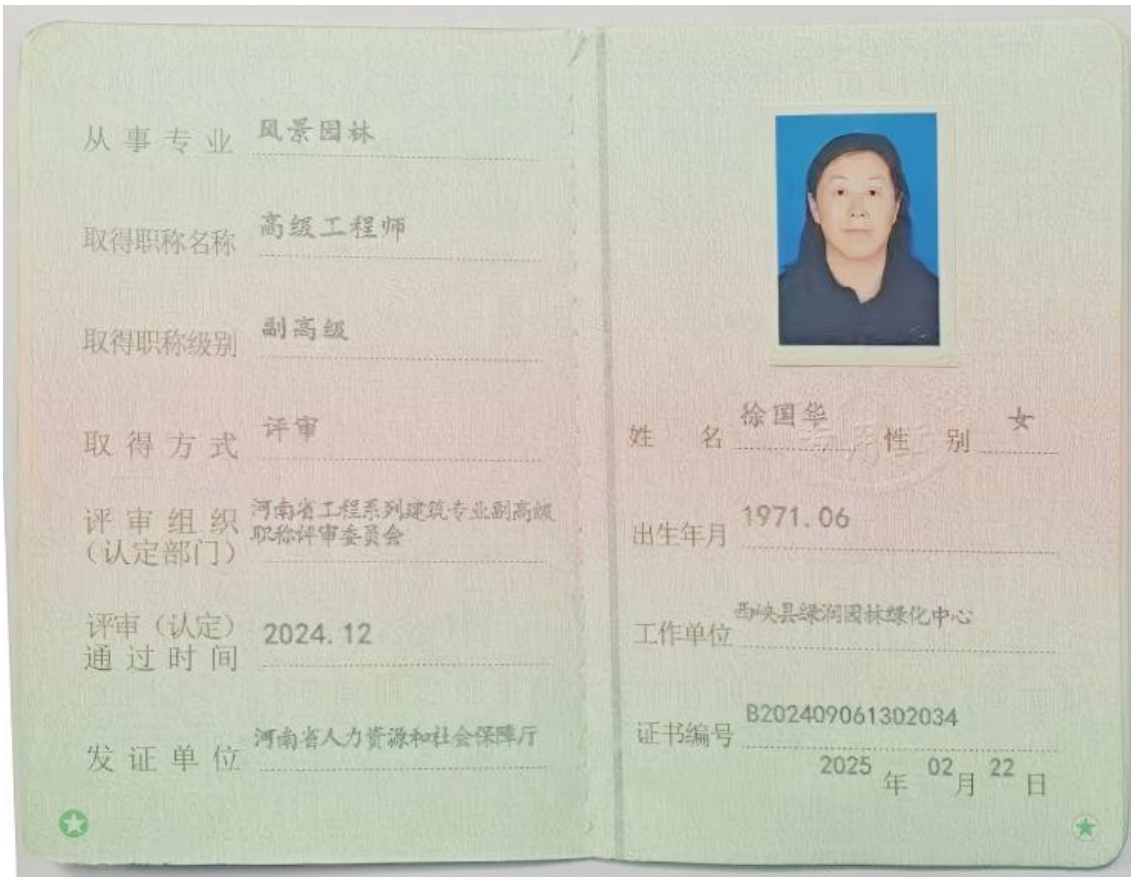 从事专业 风景园林
取得职称名称 高级工程师
取得职称级别 副高级
取得方式 评审
评审组织 河南省工程系列建筑专业副高级
(认定部门) 职称评审委员会
评审(认定)
通过时间 2024.12
发证单位 河南省人力资源和社会保障厅
姓名 徐国华 性别 女
出生年月 1971.06
工作单位 西峡县绿润园林绿化中心
证书编号 B202409061302034
2025年02月22日